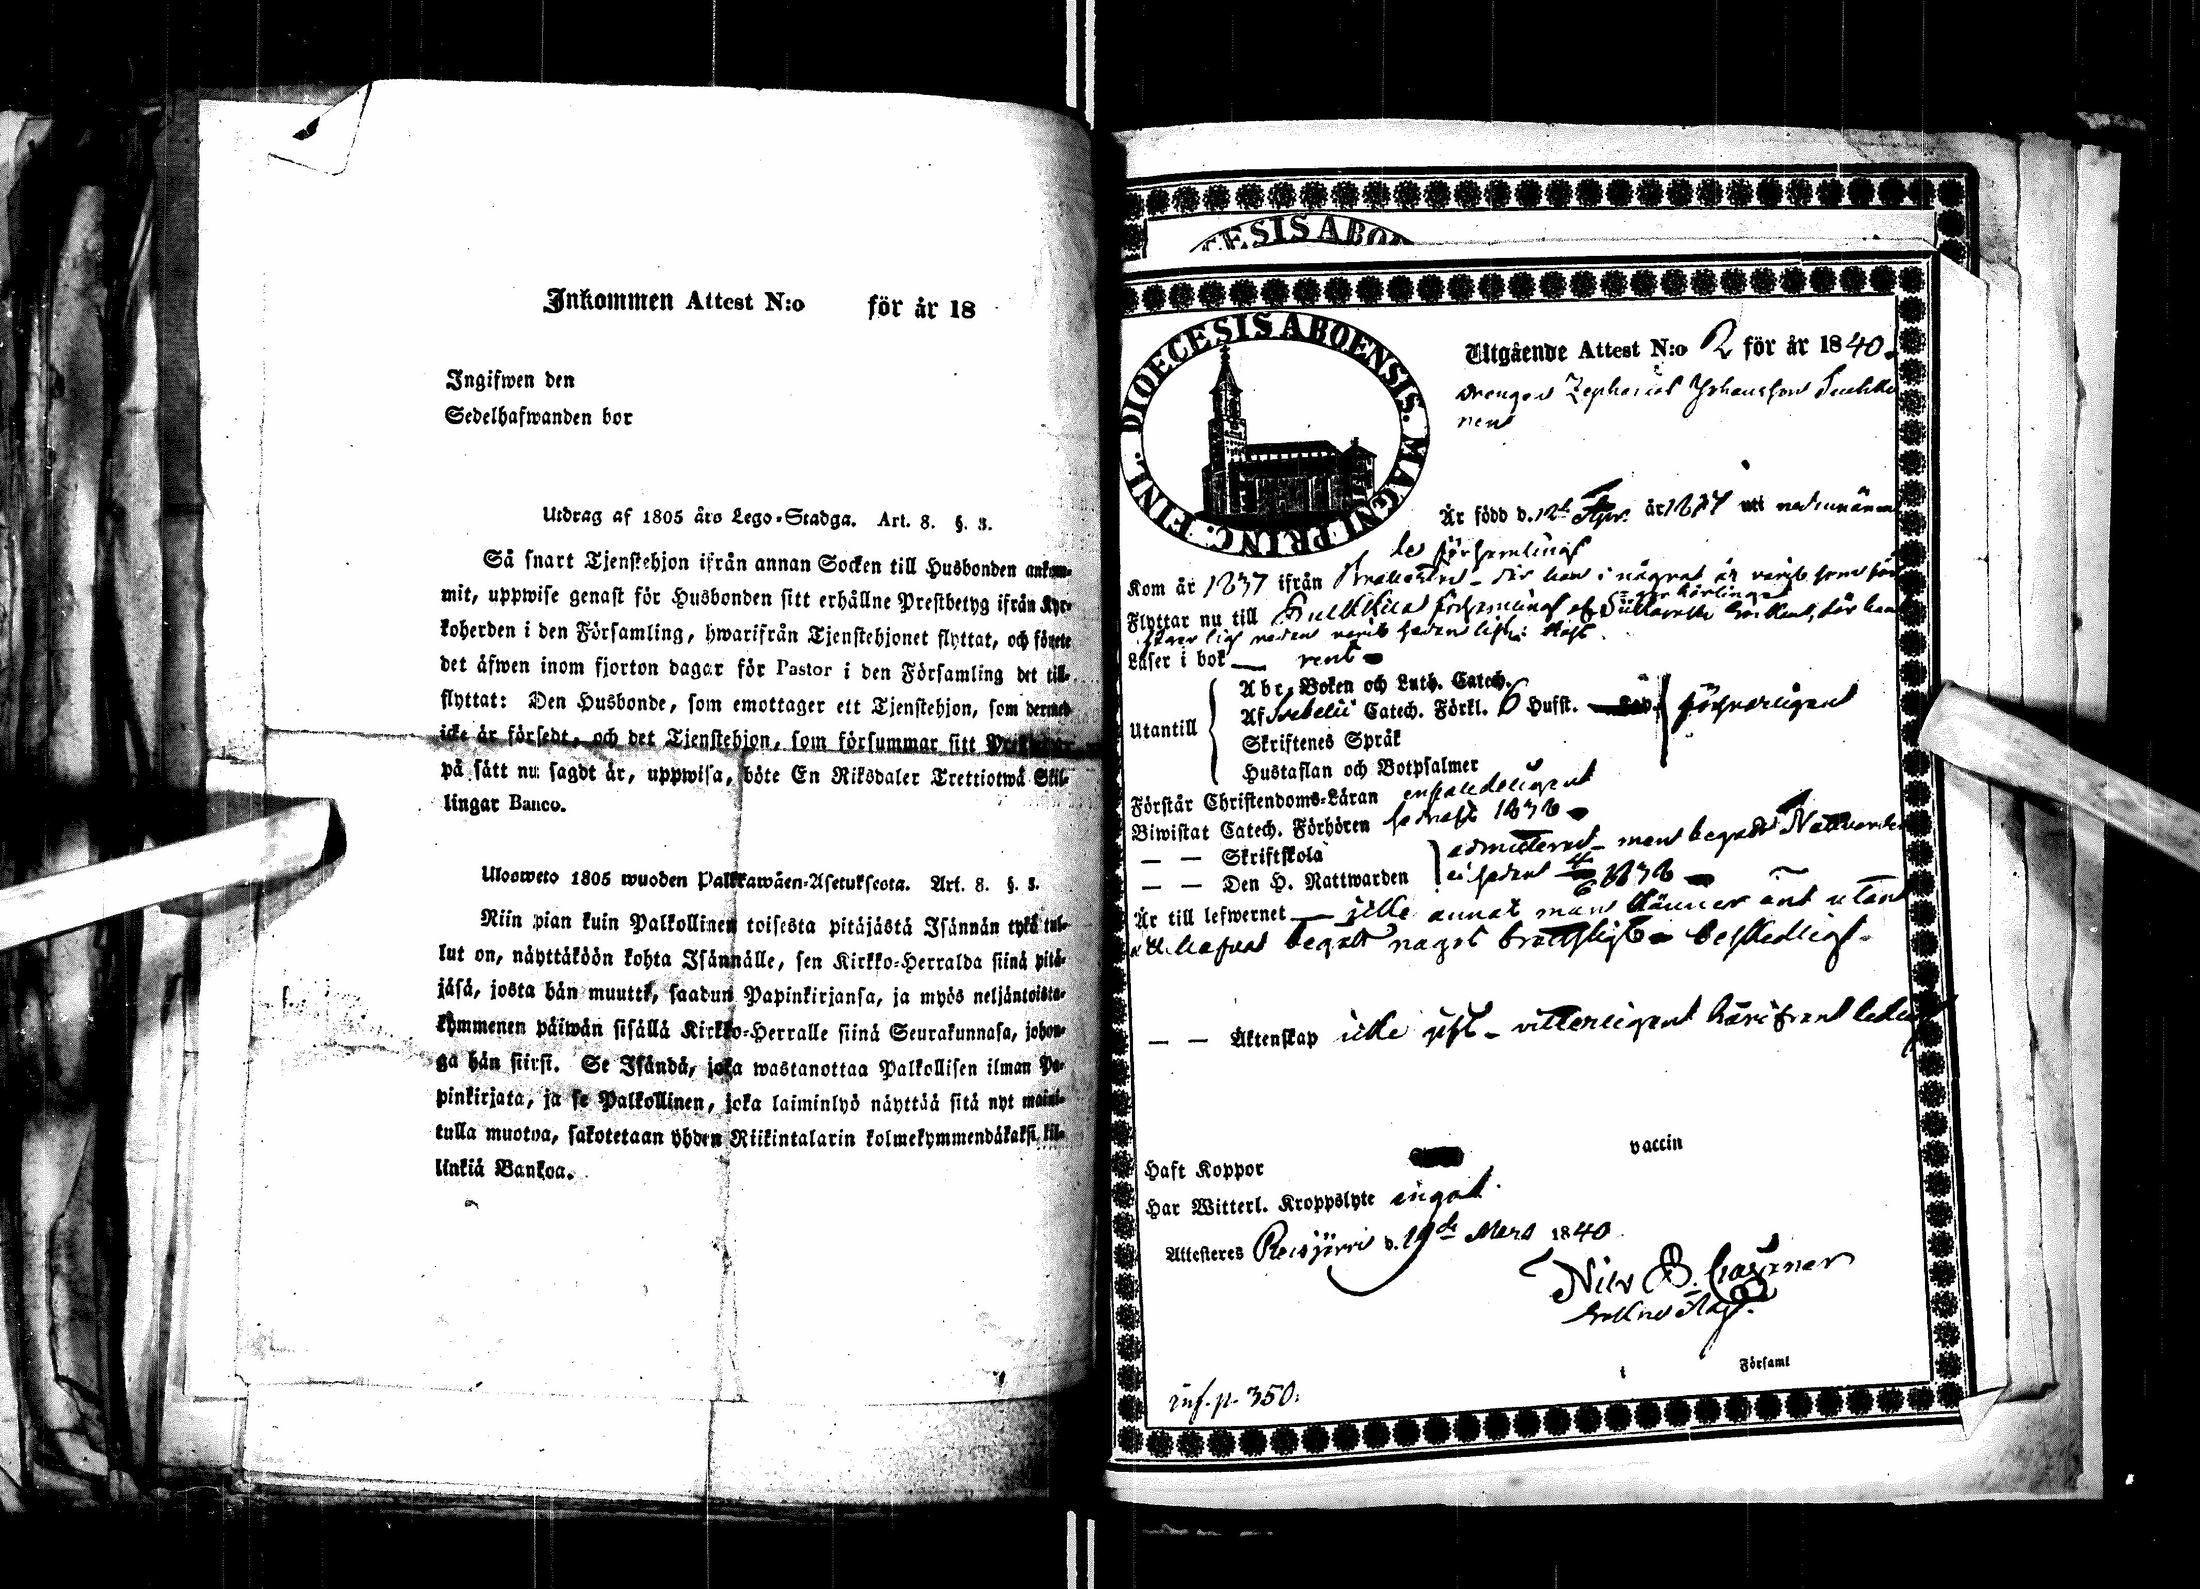 Inkommen Attest N:o för år 18
Ingifwen den
Sedelhafwanden bor
Utdrag af 1805 års Lego-Stadga. Art. 8. §. 3.
Så snart Tjenstehjon ifrån annan Socken till Husbonden ankom-
mit, uppwise genast för Husbonden sitt erhållne Prestbetyg ifrån Kyr-
koherden i den Församling, hwarifrån Tjenstehjonet flyttat, och förete
det äfwen inom fjorton dagar för Pastor i den Församling det till-
flyttat: Den Husbonde, som emottager ett Tjenstehjon, som dermed
icke är försedt, och det Tjenstehjon, som försummar sitt
på sätt nu sagdt är, uppwisa, böte En Riksdaler Trettiotwå Skil-
lingar Banco.
Ulosweto 1805 wuoden Palkkawäen-Asetuksesta. Art. 8. §. 3.
Niin pian kuin Palkollinen toisesta pitäjästä Isännän tykö tul-
lut on, näyttäköön kohta Isännälle, sen Kirkko-Herralda siinä pitä-
jäsä, josta hän muutti, saadun Papinkirjansa, ja myös neljäntoista-
kymmenen päiwän sisällä Kirkko-Herralle siinä Seurakunnasa, johon-
ga hän siirsi. Se Isändä, joka wastanottaa Palkollisen ilman Pa-
pinkirjata, ja se Palkollinen, joka laiminlyö näyttää sitä nyt maini-
tulla muotoa, sakotetaan yhden Riikintalarin kolmekymmendäkaksi kil-
linkiä Bankoa.
DIOECESIS ABOENSIS
DIOECESIS ABOENSIS. MAGNI PRINC. FINL.
Utgående Attest N:o 2 för år 1840.
Drengen Zepharias Johansson
nen
Är född d. 12te Apr. år uti nedannämn
des församling
Kom år 1837 ifrån där han i några år varit
Flyttar nu till församling af
Läser i bok — rent
Utantill
Abc-Boken och Luth. Catech.
Af Svebelii Catech. Förkl. 6 Hufst.
Skriftenes Språk
Hustaflan och Botpsalmer
försvarligent
Förstår Christendoms-Läran enfaldeligent
Biwistat Catech. Förhören sednast 1838
— — Skriftskola admitterad men begådt Nattvarden
— — Den H. Nattwarden ej sedan 1838
Är till lefwernet — icke annat man känner änt utan
begått något brottsligt beskedligt.
— — Äktenskap icke gift - vitterligent härifrån ledig
Haft Koppor vaccin
Har Witterl. Kroppslyte inget.
Attesteres Reisjärvi d. 19de Mars 1840
Nils B.
i Församl
inf. p. 350.